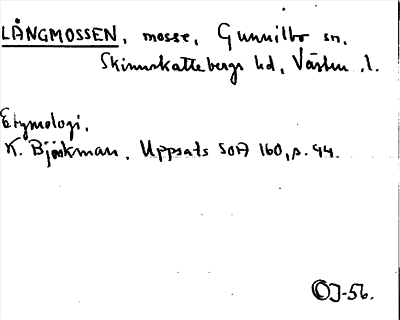 LÅNGMOSSEN, mosse, Gunnilbo sn,
Skinnskattebergs hd, Västm. l.
Etymologi.
K. Björkman. Uppsats SOA 160, s. 44.
OJ-56.